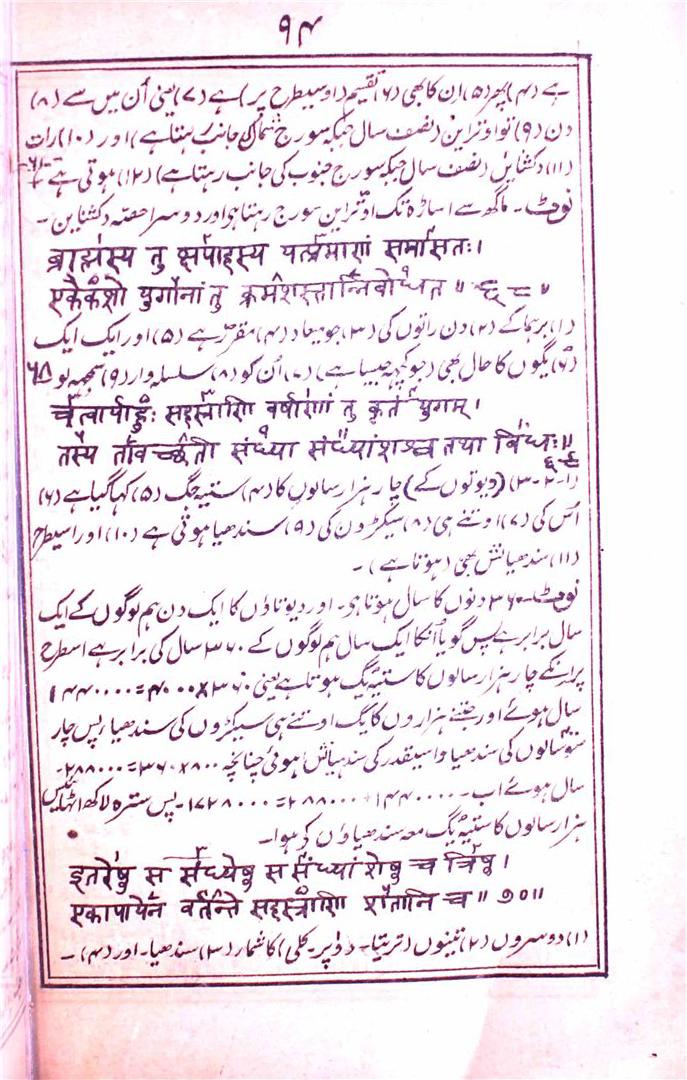 ۱۴
ہے (۴) پھر (۵) ان کا بھی (۶) تقسیم (اوسیطرح پر) ہے (۷) یعنی اُن میں سے (۸)
دن (۹) تو اوتراین (نصف سال جبکہ سورج شمال کی جانب رہتا ہے) اور (۱۰) رات
(۱۱) دکشناین (نصف سال جبکہ سورج جنوب کی جانب رہتا ہے) (۱۲) ہوتی ہے
نوٹ۔ ماگھ سے اساڑہ تک اوتراین سورج رہتا ہی اور دوسرا حصتہ دکشناین۔
ब्राह्मस्य तु क्षपाहस्य यत्प्रमाणं समासतः।
एकैकशो युगानां तु क्रमशस्तान्निबोधत ॥ ६८ ॥
(۱) برہما کے (۲) دن راتوں کی (۳) جو میعاد (۴) مقرر ہے (۵) اور ایک ایک
(۶) یگوں کا حال بھی (جو کچھ جیسا ہے) (۷) اُن کو (۸) سلسلہ وار (۹) سمجھ لو ۶۸
चत्वार्याहुः सहस्त्राणि वर्षाणां तु कृतं युगम्।
तस्य तावच्छती संध्या संध्यांशश्च तथा विधः॥
६९
(۱-۲-۳) (دیوتوں کے) چار ہزار سالوں کا (۴) ستیہ جگ (۵) کہا گیا ہے (۶)
اُس کی (۷) اوتنے ہی (۸) سیکڑوں کی (۹) سندھیا ہوتی ہے (۱۰) اور اسیطرح
(۱۱) سندھیانش بھی (ہوتا ہے)۔
نوٹ۔ ۳۶۰ دنوں کا سال ہوتا ہی۔ اور دیوتاؤں کا ایک دن ہم لوگوں کے ایک
سال برابر ہے پس گویا اُنکا ایک سال ہم لوگوں کے ۳۶۰ سال کی برابر ہے اسطرح
پر انکے چار ہزار سالوں کا ستیہ یگ ہوتا ہے یعنی ۳۶۰×۴۰۰۰=۱۴۴۰۰۰۰
سال ہوئے اور جتنے ہزاروں کا یگ اوتنے ہی سیکڑوں کی سندھیا، پس چار
سو سالوں کی سندھیا و اسیقدر کی سندہیانش ہوئی چنانچہ ۸۰۰×۳۶۰=۲۸۸۰۰۰۔
سال ہوئے اب۔ ۱۴۴۰۰۰۰+۲۸۸۰۰۰=۱۷۲۸۰۰۰۔ پس سترہ لاکھ اٹھائیس
ہزار سالوں کا ستیہ یگ معہ سندھیاؤں کے ہوا۔
इतरेषु स संध्येषु स संध्यांशेषु च त्रिषु।
एकापायेन वर्तन्ते सहस्त्राणि शतानि च ॥ ७० ॥
(۱) دوسروں (۲) تینوں (تریتا۔ دواپر۔ کلی) کا شمار (۳) سندھیا۔ اور (۴)۔